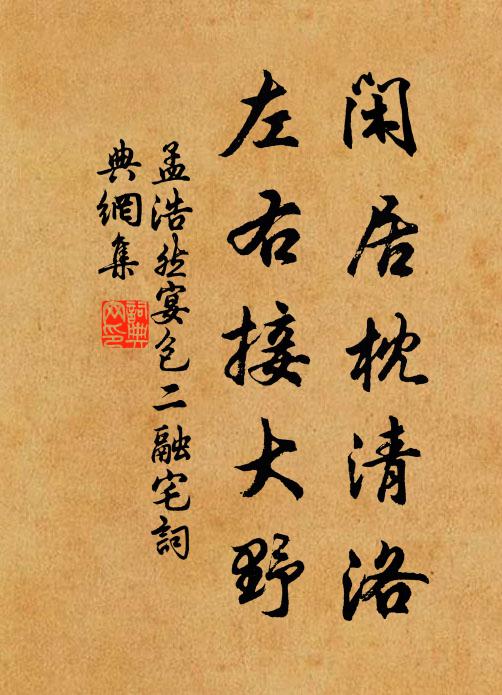 閑居枕清洛
左右接大野
孟浩然宴包二融宅詞
典網集
詞典
网印